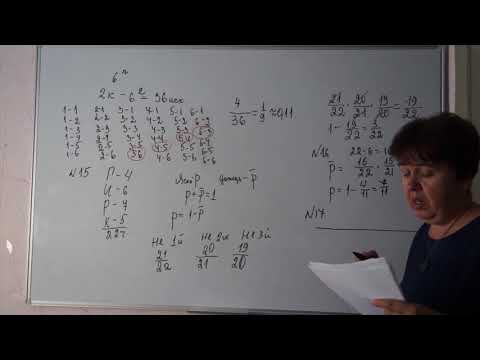 6ⁿ
2к - 6² = 36 исх
1-1 2-1 3-1 4-1 5-1 6-1
1-2 2-2 3-2 4-2 5-2 6-2
1-3 2-3 3-3 4-3 5-3 6-3
1-4 2-4 3-4 4-4 5-4 6-4
1-5 2-5 3-5 4-5 5-5 6-5
1-6 2-6 3-6 4-6 5-6 6-6
4/36 = 1/9 ≈ 0,11
№15
П-4
И-6
Р-7
К-5
22т
p + p̄ = 1
p = 1 - p̄
Не 1й Не 2й Не 3й
21/22 20/21 19/20
21/22 · 20/21 · 19/20 = 19/22
1 - 19/22 = 3/22
№16 22-6=16
p̄ = 16/22 · 15/21
p = 1 - 4/11 = 7/11
№17